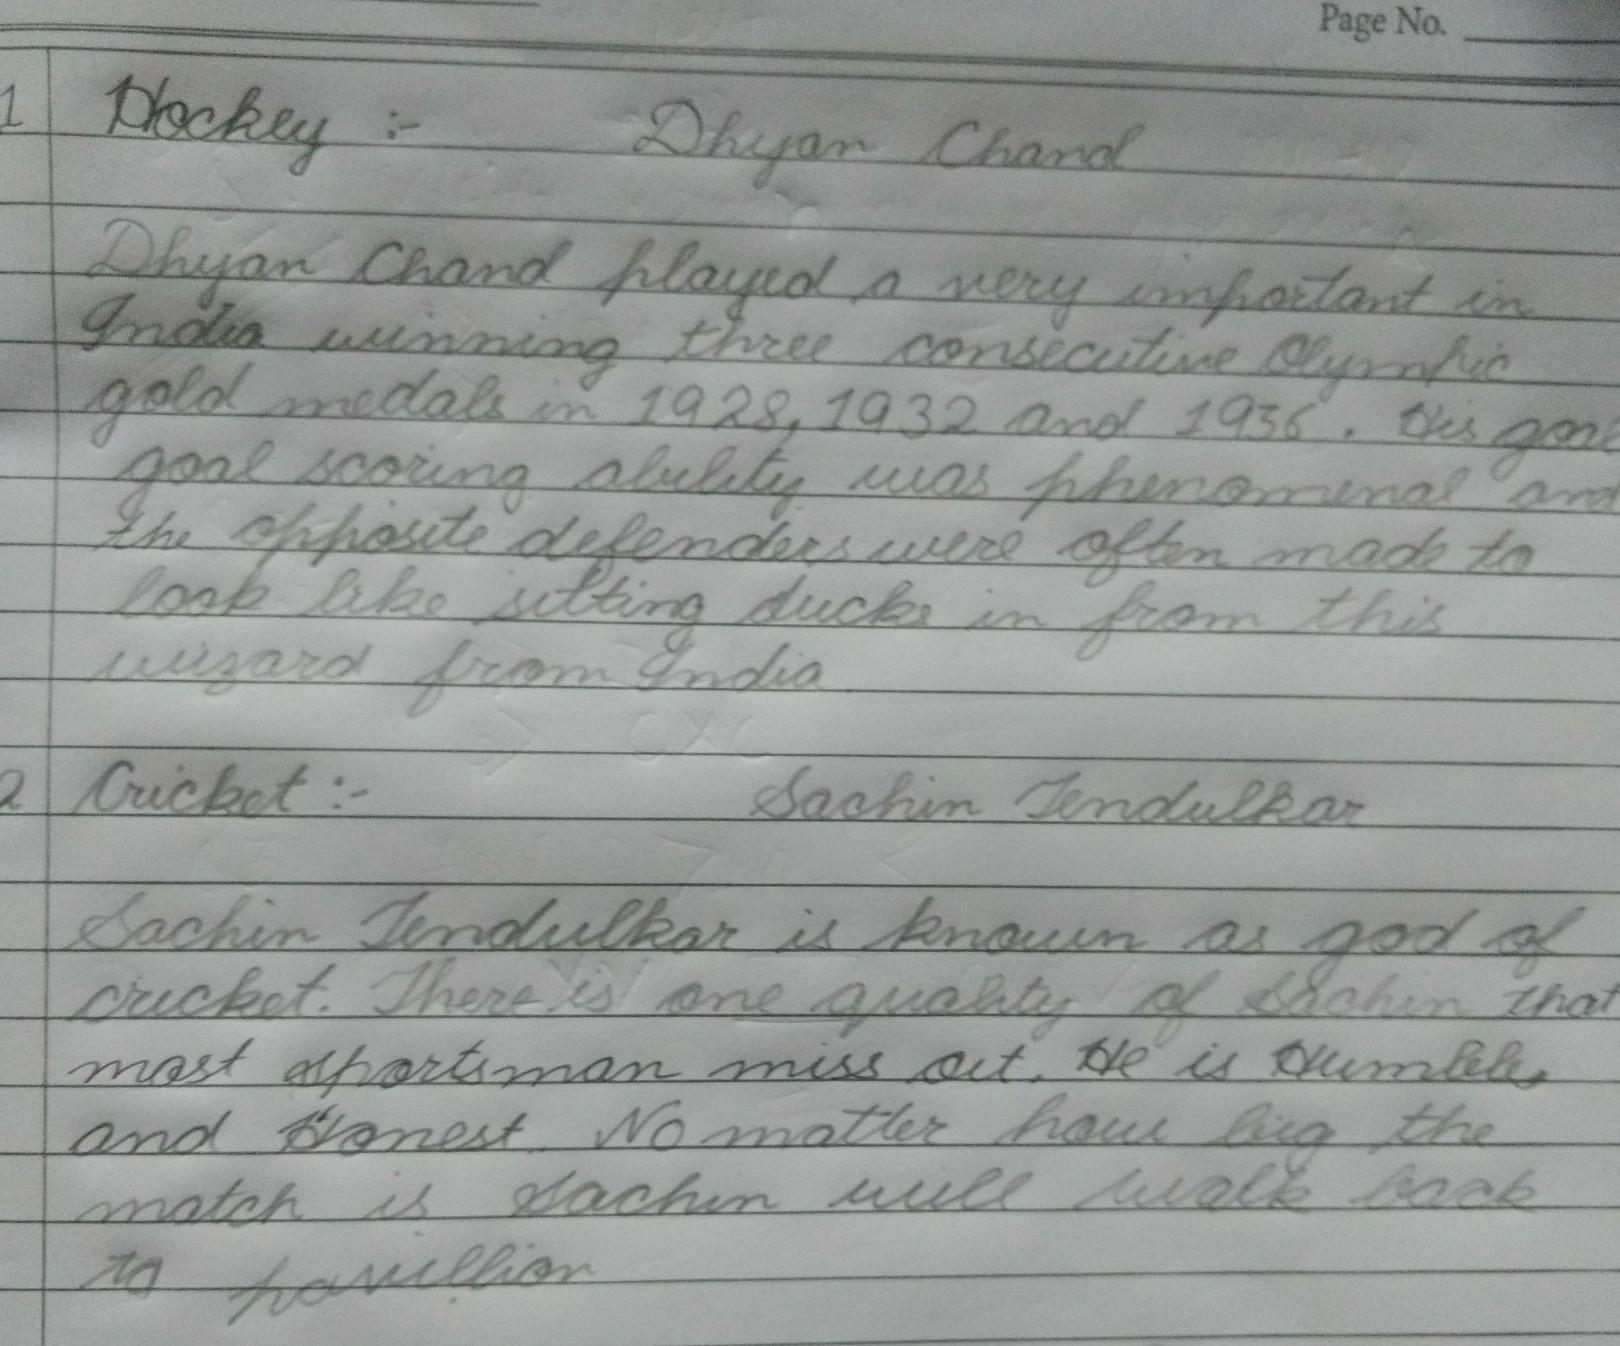 Page No.
1 Hockey :- Dhyan Chand
Dhyan Chand played a very important in
India winning three consecutive Olymphic
gold medals in 1928, 1932 and 1936. His goal
goal scoring ability was phenomenal and
the opposite defenders were often made to
look like sitting ducks in from this
wizard from India
2 Cricket :- Sachin Tendulkar
Sachin Tendulkar is known as god of
cricket. There is one quality of Sachin that
most sportsman miss out. He is Humble,
and Honest. No matter how big the
match is Sachin will walk back
to pavillion